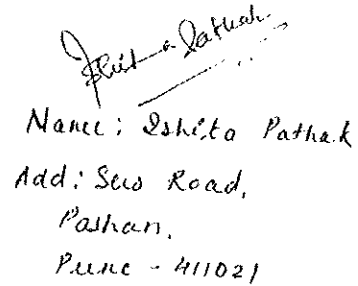 Ishita Pathak
Name: Ishita Pathak
Add: Sus Road,
Pashan,
Pune - 411021